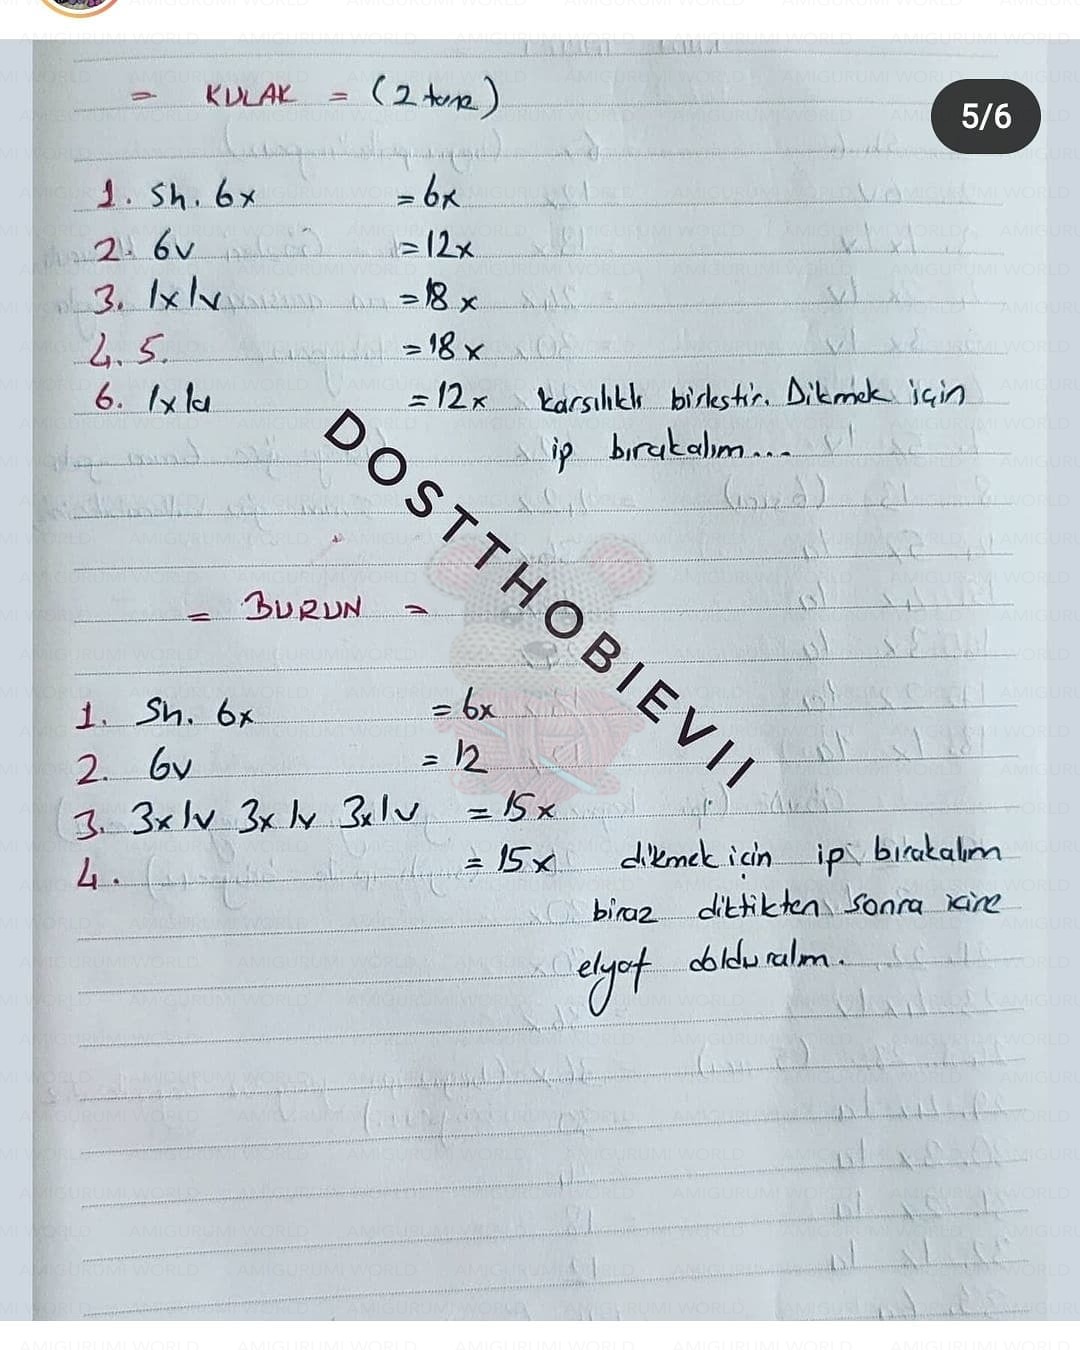 5/6
= KULAK = (2 tane)
1. Sh. 6x = 6x
2. 6v = 12x
3. 1x1v = 18x
4. 5. = 18x
6. 1x1a = 12x karsılıklı birlestir. Dikmek için
ip bırakalım...
DOSTTHOBIEVII
= BURUN =
1. Sh. 6x = 6x
2. 6v = 12
3. 3x1v 3x1v 3x1v = 15x
4. = 15x dikmek için ip bırakalım
biraz diktikten sonra icine
elyaf dolduralım.
AMIGURUMI WORLD